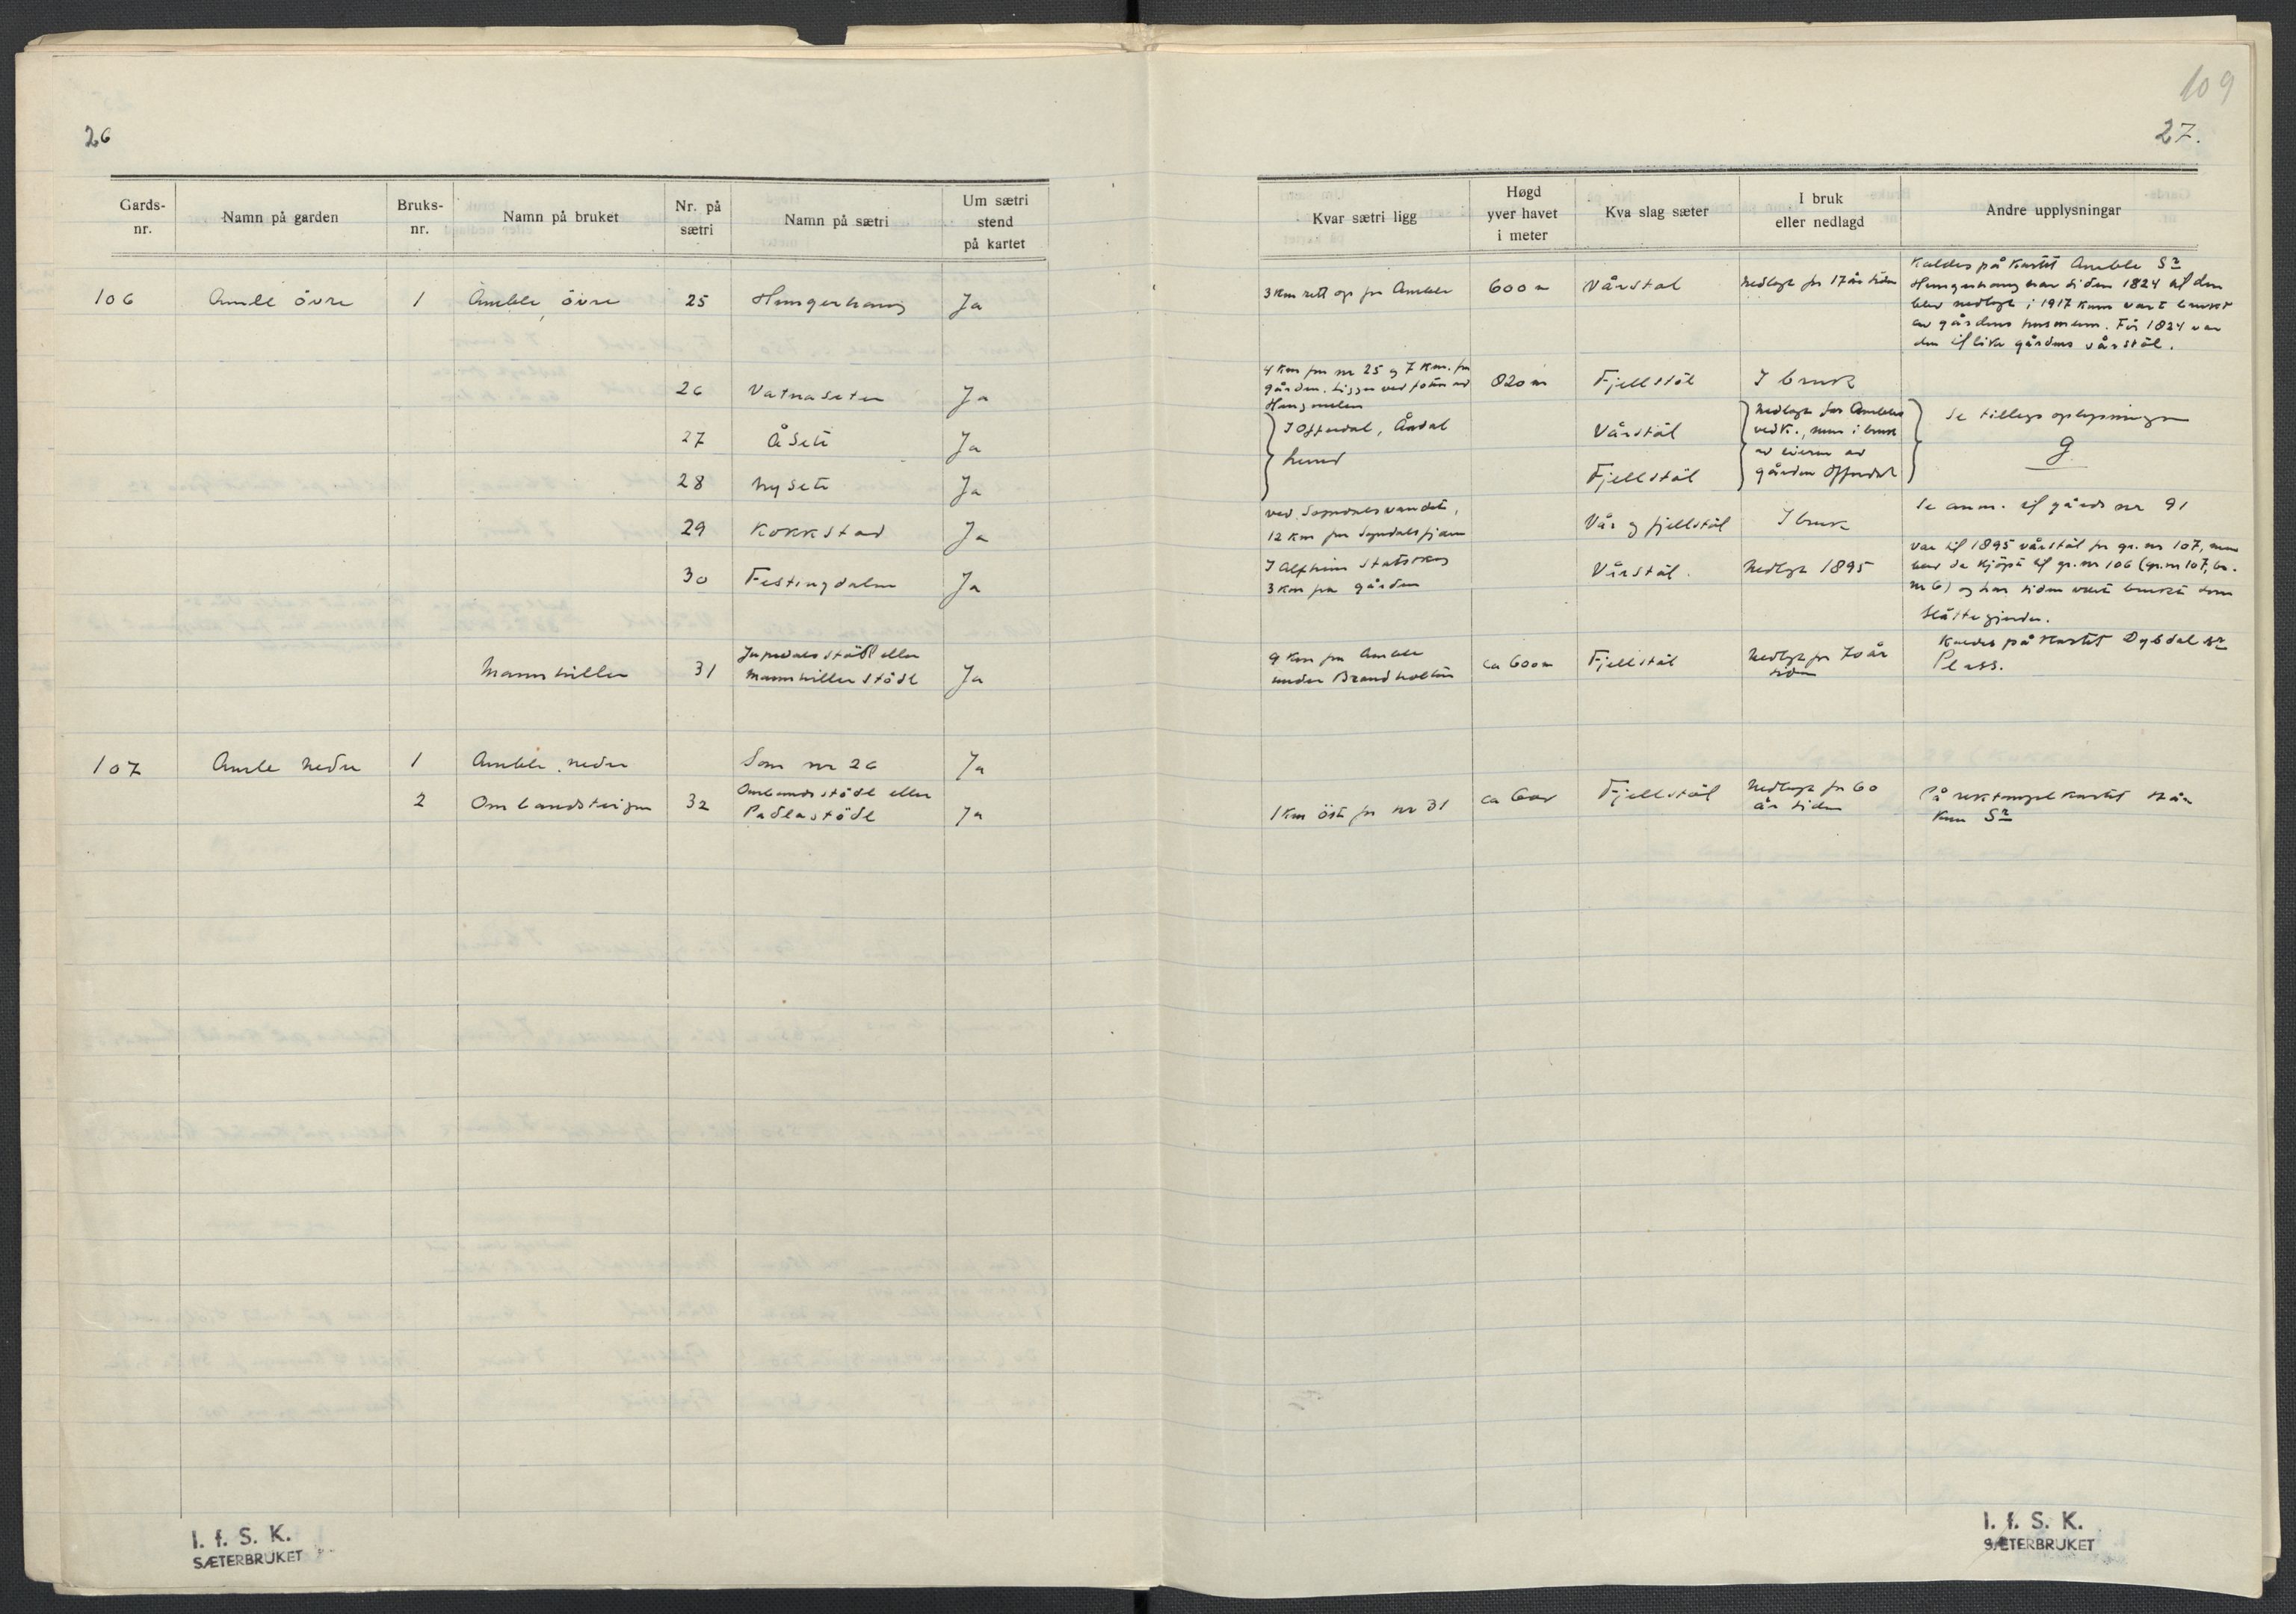 26
Gards-nr.
Namn på garden
Bruks-nr.
Namn på bruket
Nr. på sætri
Namn på sætri
Um sætri stend på kartet
106 Amle övre 1 Amble, övre 25 Hungerhaug Ja
26 Vatnaseter Ja
27 Åsete Ja
28 Nysete Ja
29 Kokkstad Ja
30 Festingdalen Ja
Mannhiller 31 stödl eller
Mannhillerstödl Ja
107 Amle nedre 1 Amble, nedre Som nr 26 Ja
2 Ombandsteigen 32 Ombandsstödl eller
Padlastödl Ja
I. f. S. K.
SÆTERBRUKET
109
27.
Kvar sætri ligg
Høgd yver havet i meter
Kva slag sæter
I bruk eller nedlagd
Andre upplysningar
3 km rett op fr Amble 600 m Vårstøl Nedlagt for 17 år siden
Kaldes på kartet Amble Sr
Hungerhaug har siden 1824 til den
blev nedlagt i 1917 kun vært brukt
av gårdens husmenn. Før 1824 var
den til like gårdens vårstöl.
4 km fra nr 25 og 7 km. fra
gården. Ligger ved foten av
820 m Fjellstöl I bruk
I Offerdal, Årdal
herred
Vårstöl
Fjellstöl
Nedlagt for Ambles
vedk., men i bruk
av eieren av
gården Offerdal
Se tillegsoplysninger
g
ved Sogndalsvandet,
12 km fra Sogndalsfjæra
Vår og fjellstöl I bruk
Se anm. til gårds nr 91
I Alfheim Statsskog
3 km fra gården
Vårstöl. Nedlagt 1895
Var til 1895 vårstöl for gr. nr 107, men
blev da kjöpt til gr. nr 106 (gr. nr 107, br.
nr 6) og har siden vært brukt som
Slåttegjerde.
9 km fra Amble
under Brandholten
ca 600 m Fjellstöl Nedlagt for 70 år
siden
Kaldes på kartet Dybdal Sr
Plass.
1 km öst for nr 31 ca 600 Fjellstöl Nedlagt for 60
år siden
På rektangelkartet står
kun Sr
I. f. S. K.
SÆTERBRUKET